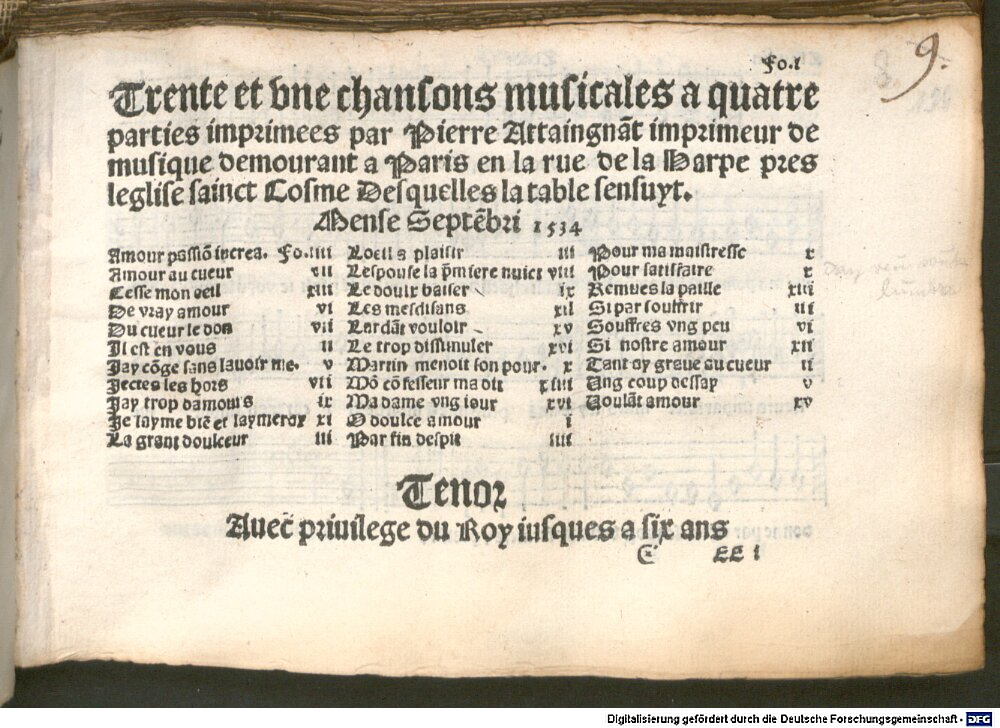 Fo.i
9.
Trente et vne chansons musicales a quatre
parties imprimees par Pierre Attaingnãt imprimeur de
musique demourant a Paris en la rue de la Harpe pres
leglise sainct Cosme Desquelles la table sensuyt.
Mense Septẽbri 1534
Amour passiõ increa. Fo.iiii
Amour au cueur vii
Cesse mon oeil xiii
De vray amour vi
Du cueur le don vii
Il est en vous ii
Jay cõge sans lauoir me. v
Jectes les hors vii
Jay trop damours ix
Je layme biẽ et laymeray xi
La grant doulceur iii
Loeil a plaisir iii
Lespouse la p̃miere nuict viii
Le doulx baiser ix
Les mesdisans xii
Lardãt vouloir xv
Le trop dissimuler xvi
Martin menoit son pour. x
Mõ cõfesseur ma dit xiiii
Ma dame vng iour xvi
O doulce amour i
Par fin despit iiii
Pour ma maistresse x
Pour satiffaire x
Remues la paille xiii
Si par souffrir iii
Souffres vng peu vi
Si nostre amour xii
Tant ay graue au cueur ii
Ung coup dessay v
Voulãt amour xv
Tenor
Auec priuilege du Roy iusques a six ans
EE i
Digitalisierung gefördert durch die Deutsche Forschungsgemeinschaft - DFG